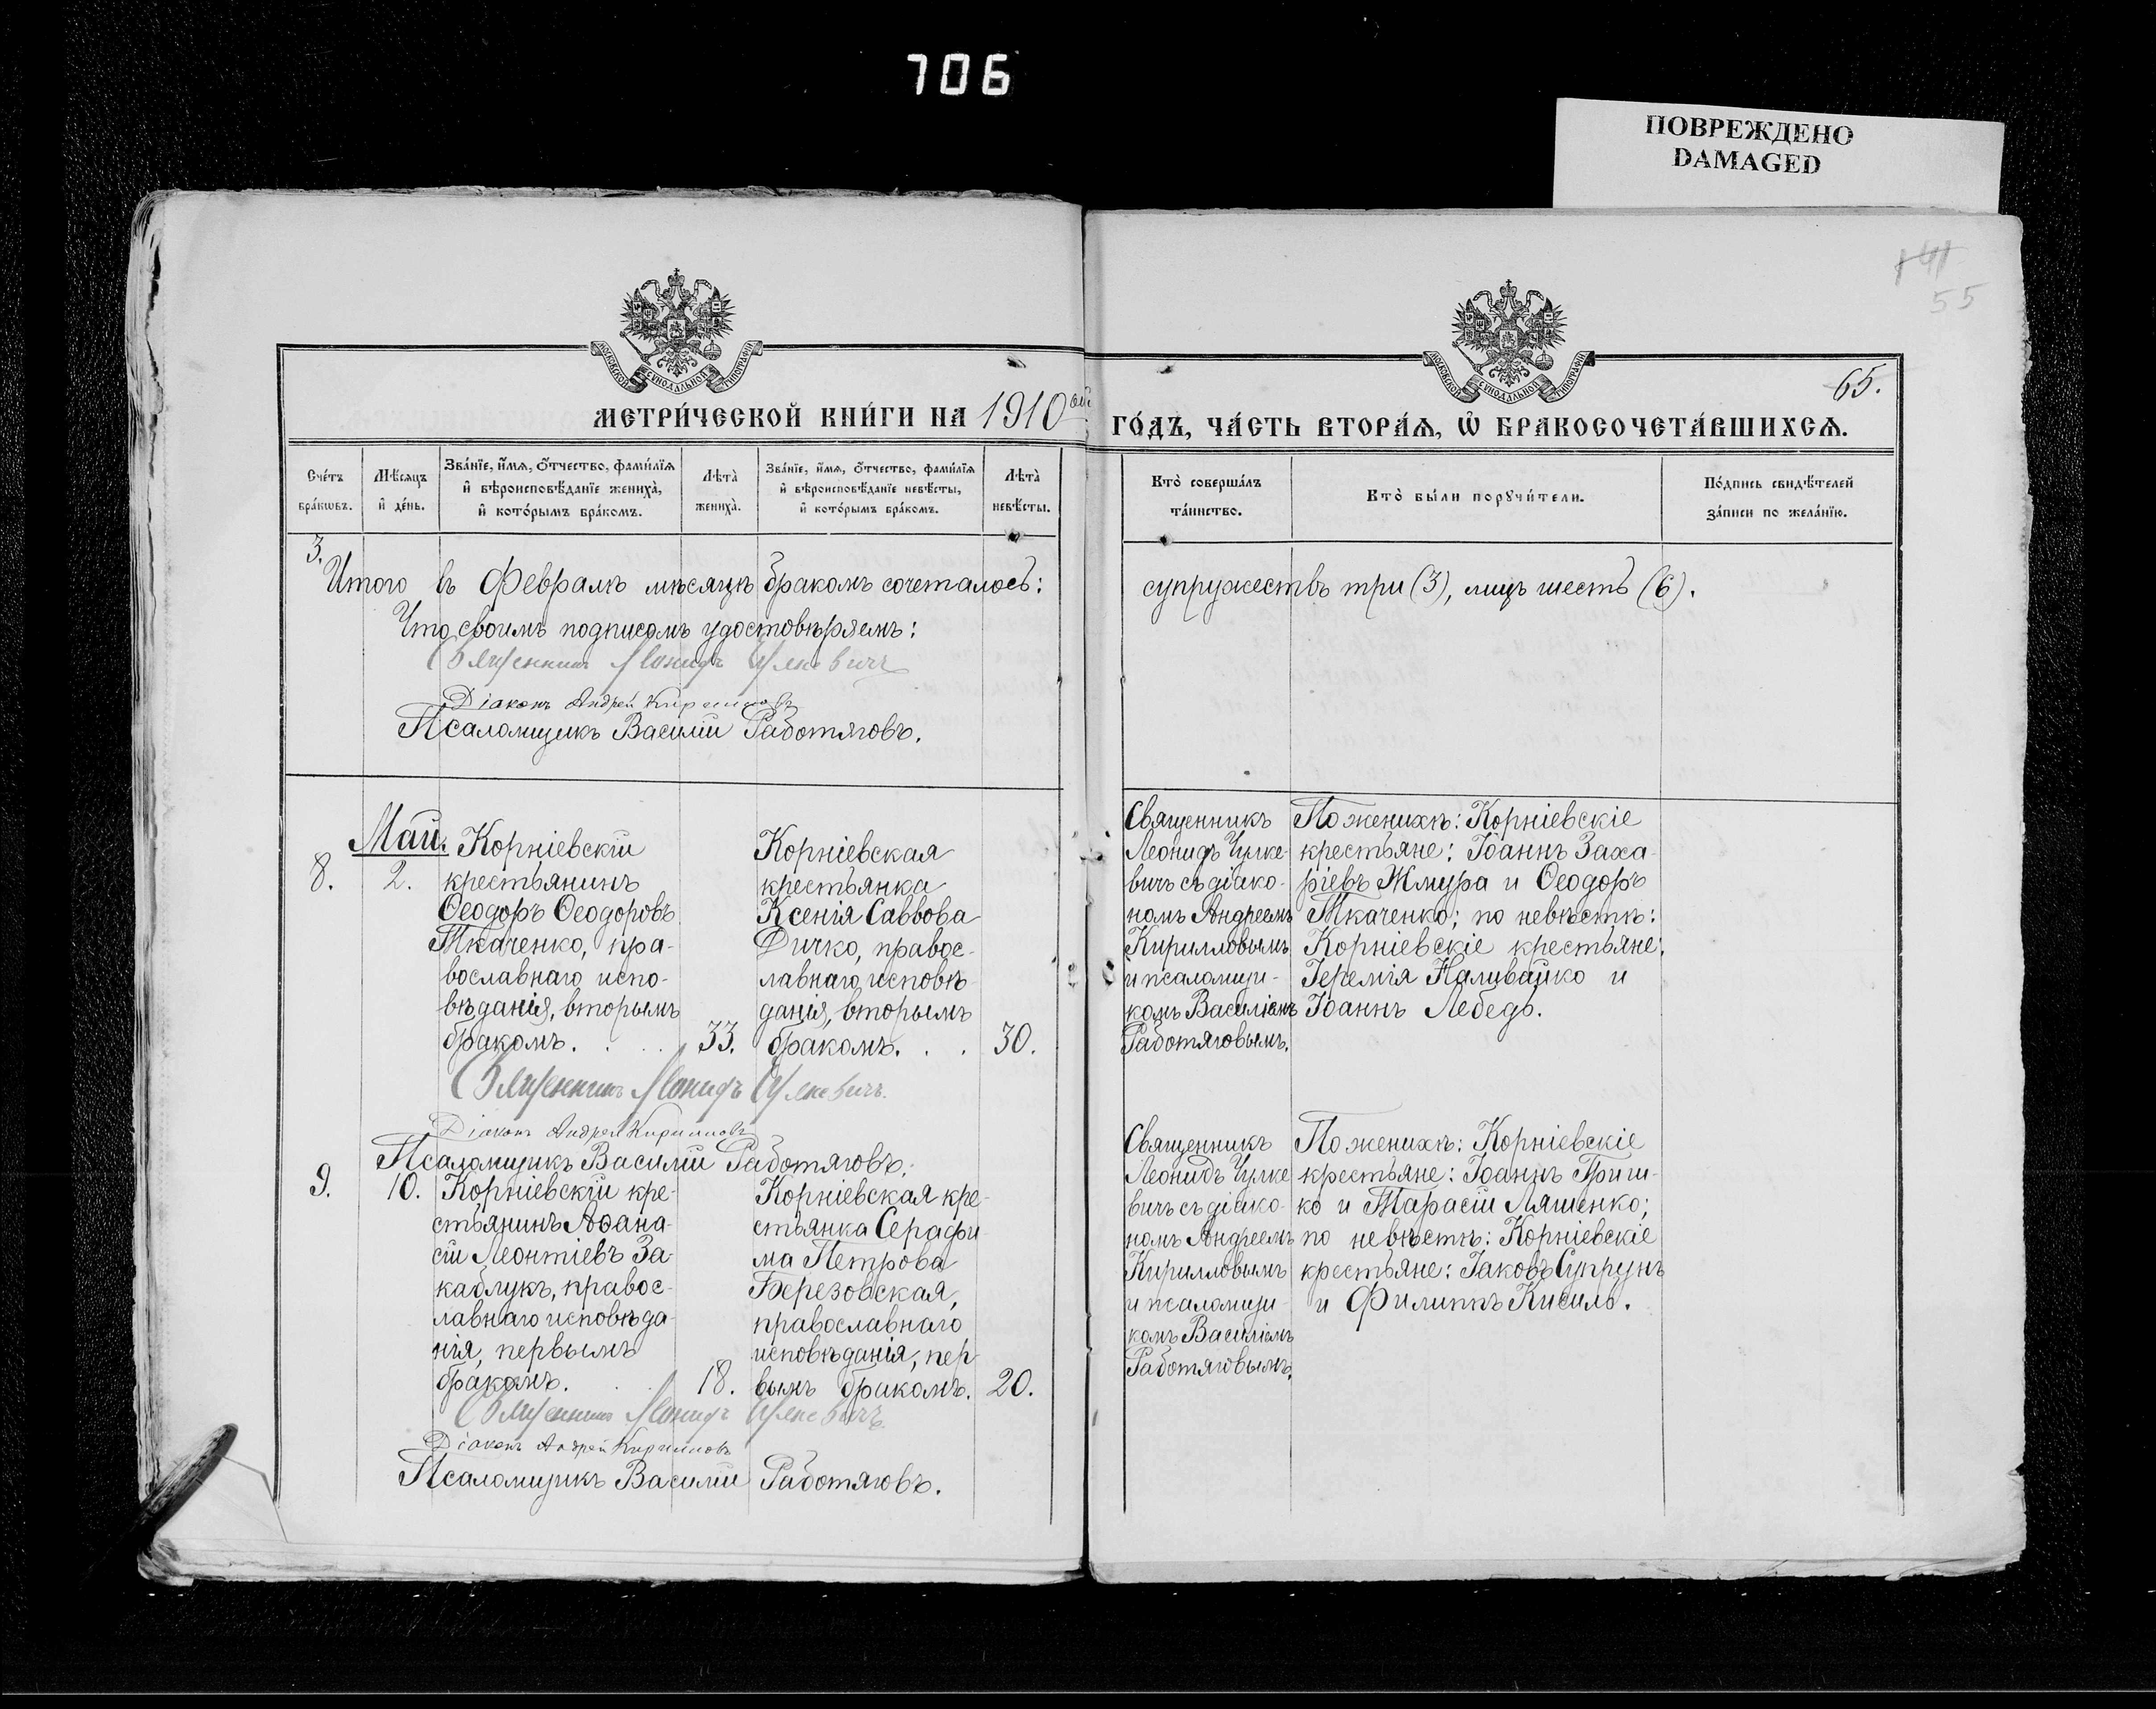 706
ПОВРЕЖДЕНО
DAMAGED
55
65.
МОСКОВСКОЙ СѴНОДАЛЬНОЙ ТИПОГРАФІИ
МОСКОВСКОЙ СѴНОДАЛЬНОЙ ТИПОГРАФІИ
МЕТРИ́ЧЕСКОЙ КНИ́ГИ НА 1910ый ГО́ДЪ, ЧА́СТЬ ВТОРА́Ѧ, Ѡ҆ БРАКОСОЧЕТА́ВШИХСѦ.
Сче́тъ
бра́кѡвъ.
Мѣ́сѧцъ
и҆ де́нь.
Зва́нїе, и҆́мѧ, ѻ҆́тчество, фами́лїѧ
и҆ вѣроисповѣ́данїе жениха̀,
и҆ кото́рымъ бра́комъ.
Лѣта̀
жениха̀.
Зва́нїе, и҆́мѧ, ѻ҆́тчество, фами́лїѧ
и҆ вѣроисповѣ́данїе невѣ́сты,
и҆ кото́рымъ бра́комъ.
Лѣта̀
невѣ́сты.
Кто̀ соверша́лъ
та́инство.
Кто̀ бы́ли порꙋчи́тели.
По́дпись свидѣ́телей
за́писи по жела́нїю.
3.
Итого въ Февралѣ мѣсяцѣ бракомъ сочеталось: супружествъ три (3), лицъ шесть (6).
Что своимъ подписомъ удостовѣряемъ:
Священникъ Леонидъ Чулкевичъ
Діаконъ Андрей Кирилловъ
Псаломщикъ Василій Работяговъ.
Май.
8.
2.
Корніевскій
крестьянинъ
Ѳеодоръ Ѳеодоровъ
Ткаченко, пра-
вославнаго испо-
вѣданія, вторымъ
бракомъ. . . .
33.
Корніевская
крестьянка
Ксенія Саввова
Дичко, правос-
лавнаго исповѣ
данія, вторымъ
бракомъ. . .
30.
Священникъ
Леонидъ Чулке-
вичъ съ діако-
номъ Андреемъ
Кирилловымъ
и псаломщи-
комъ Василіемъ
Работяговымъ.
По женихѣ: Корніевскіе
крестьяне: Іоаннъ Заха-
ріевъ Жмура и Ѳеодоръ
Ткаченко; по невѣстѣ:
Корніевскіе крестьяне:
Іеремія Наливайко и
Іоаннъ Лебедь.
Священникъ Леонидъ Чулкевичъ.
Діаконъ Андрей Кирилловъ
Псаломщикъ Василій Работяговъ.
9.
10.
Корніевскій кре-
стьянинъ Аѳана-
сій Леонтіевъ За-
каблукъ, правос-
лавнаго исповѣда-
нія, первымъ
бракомъ. . .
18.
Корніевская кре-
стьянка Серафи
ма Петрова
Березовская,
православнаго
исповѣданія, пер-
вымъ бракомъ.
20.
Священникъ
Леонидъ Чулке
вичъ съ діако-
номъ Андреемъ
Кирилловымъ
и псаломщи-
комъ Василіемъ
Работяговымъ.
По женихѣ: Корніевскіе
крестьяне: Іоаннъ Гриш-
ко и Тарасій Ляшенко;
по невѣстѣ: Корніевскіе
крестьяне: Іаковъ Супрунъ
и Филиппъ Кисиль.
Священникъ Леонидъ Чулкевичъ
Діаконъ Андрей Кирилловъ
Псаломщикъ Василій Работяговъ.